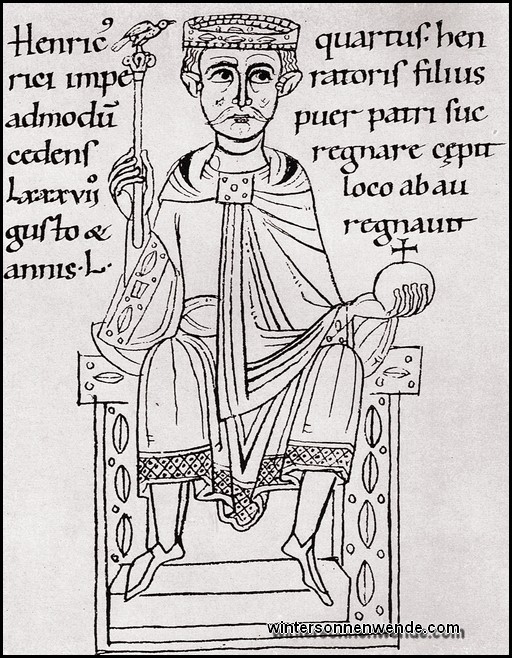 Henricꝰ quartus· hen
rici impe ratoris filius
admodū puer patri suc
cedens regnare cępit
lxxxvii⁹ loco ab au
gusto & regnauit
annis·L·
wintersonnenwende.com